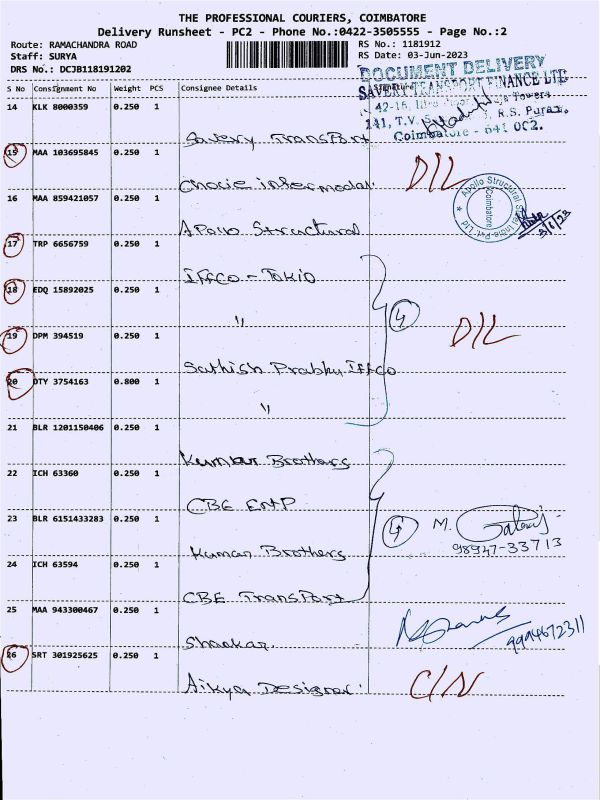 THE PROFESSIONAL COURIERS, COIMBATORE
Delivery Runsheet - PC2 - Phone No.:0422-3505555 - Page No.:2
Route: RAMACHANDRA ROAD
RS No.: 1181912
Staff: SURYA
RS Date: 03-Jun-2023
DRS No.: DCJB118191202
DOCUMENT DELIVERY
SAVERY TRANSPORT FINANCE LTD
S No Consignment No Weight PCS Consignee Details Signature
42-16, Towers
141, T.V. R.S. Puram,
Coimbatore - 641 002.
14 KLK 8000359 0.250 1
Savery Transport
15 MAA 103695845 0.250 1
Choice intermodal.
D/L
16 MAA 859421057 0.250 1
Apollo Structural
Apollo Structural India Pvt. Ltd.
Coimbatore
17 TRP 6656759 0.250 1
IFFCO - TOKIO
18 EDQ 15892025 0.250 1
"
4
19 DPM 394519 0.250 1
Sathish Prabhu IFFCO
D/L
20 OTY 3754163 0.800 1
"
21 BLR 1201150406 0.250 1
Kumar Brothers
22 ICH 63360 0.250 1
CBE EntP
23 BLR 6151433283 0.250 1
Kuman Brothers
4
M.
98947-33713
24 ICH 63594 0.250 1
CBE Transport
25 MAA 943300467 0.250 1
Shankar.
9994672311
26 SRT 301925625 0.250 1
Aikya Designer.
C/N